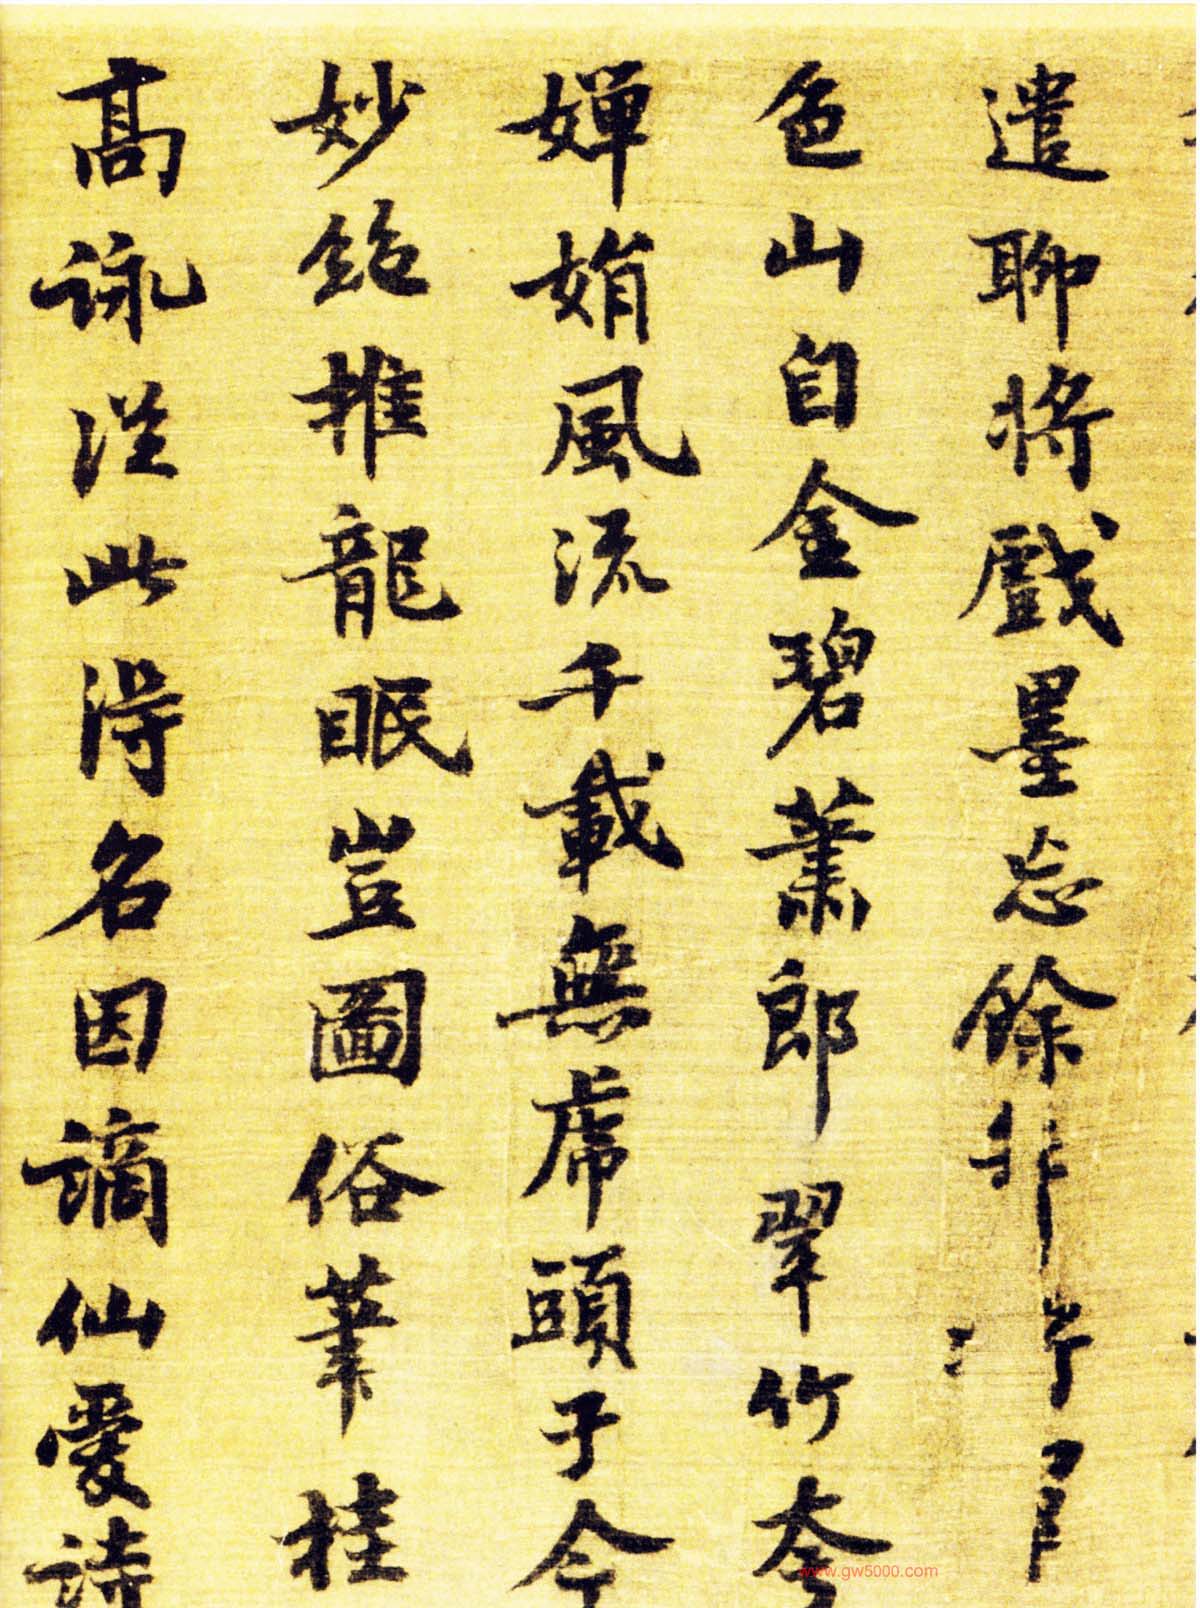 遣聊將戲墨忘餘非
色山自金碧蕭郎翠竹夸
嬋娟風流千載無虎頭于今
妙絶推龍眠豈圖俗筆挂
高詠從此得名因謫仙愛詩
www.gw5000.com